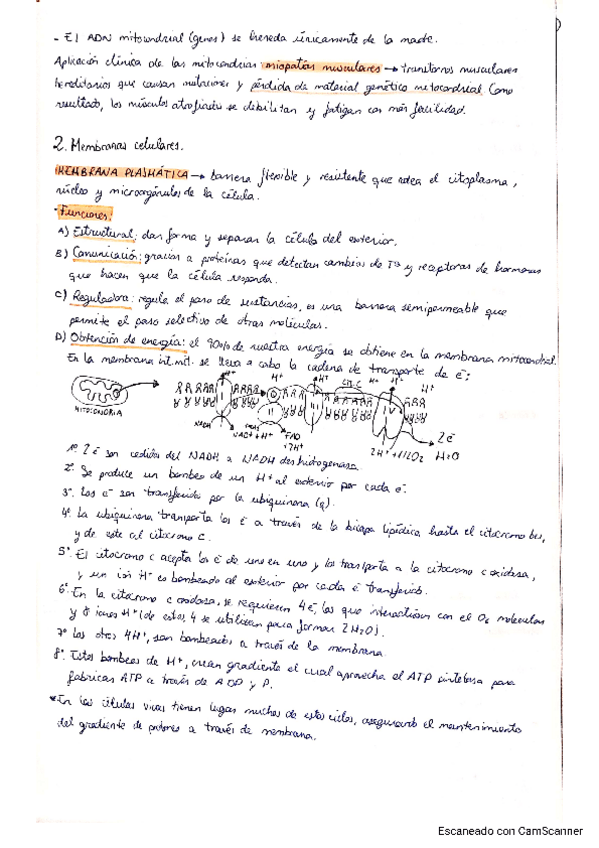 - El ADN mitocondrial (genes) se hereda únicamente de la madre.
Aplicación clínica de las mitocondrias: miopatías musculares → transtornos musculares
hereditarios que causan mutaciones y pérdida de material genético mitocondrial. Como
resultado, los músculos atrofiados se debilitan y fatigan con más facilidad.
2. Membranas celulares.
MEMBRANA PLASMÁTICA → barrera flexible y resistente que rodea el citoplasma,
núcleo y microorgánulos de la célula.
- Funciones:
A) Estructural: dan forma y separan la célula del exterior.
B) Comunicación: gracias a proteínas que detectan cambios de Tª y receptoras de hormonas
que hacen que la célula responda.
C) Reguladora: regula el paso de sustancias, es una barrera semipermeable que
permite el paso selectivo de otras moléculas.
D) Obtención de energía: el 90% de nuestra energía se obtiene en la membrana mitocondrial.
En la membrana int. mit. se lleva a cabo la cadena de transporte de é:
H⁺ H⁺ H⁺ H⁺ H⁺
MITOCONDRIA
NADH NAD⁺ + H⁺ FAD
+2H⁺
2H⁺ + 1/2O₂ H₂O
2é
1º. 2 é son cedidos del NADH a NADH deshidrogenasa.
2º. Se produce un bombeo de un H⁺ al exterior por cada é.
3º. Los é son transferidos por la ubiquinona (q).
4º. La ubiquinona transporta los é a través de la bicapa lipídica hasta el citocromo
y de este al citocromo c.
5º. El citocromo c acepta los é de uno en uno y los transporta a la citocromo c oxidasa,
y un ión H⁺ es bombeado al exterior por cada é transferido.
6º. En la citocromo c oxidasa, se requieren 4 é, los que interactúan con el O₂ molecular
y 8 iones H⁺ (de estos, 4 se utilizan para formar 2H₂O).
7º. Los otros 4H⁺, son bombeados a través de la membrana.
8º. Estos bombeos de H⁺, crean gradiente el cual aprovecha el ATP sintetasa para
fabricar ATP a través de ADP y P.
*En las células vivas tienen lugar muchos de estos ciclos, asegurando el mantenimiento
del gradiente de protones a través de membrana.
Escaneado con CamScanner